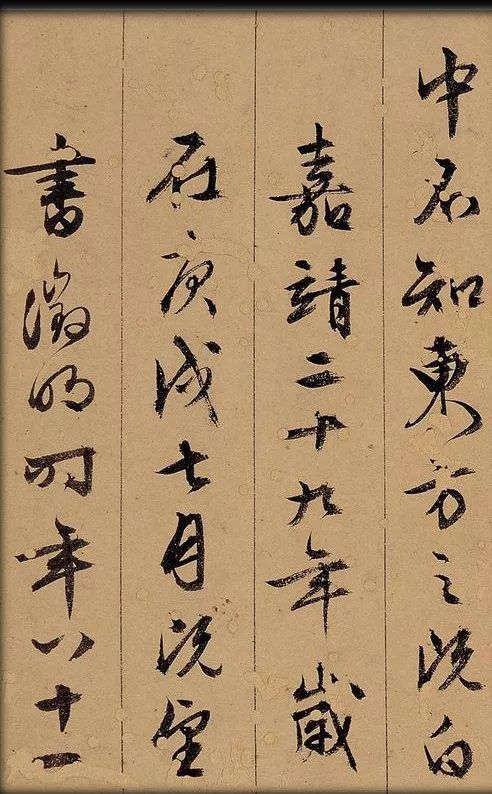 中不知東方之既白
嘉靖二十九年歲
在庚戌七月既望
書徵明時年八十一